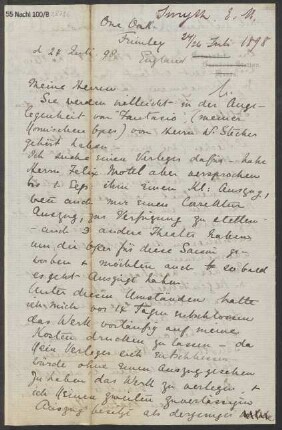 55 Nachl 100/8
Smyth E. M.
One Oak.
Frimley 24/26 Juli 1898
d 24 Juli. 98. England
Meine Herren
Sie werden vielleicht in der Ange-
legenheit von Fantasio (meiner
Komischen Oper) von Herrn W. Stecher
gehört haben.
Ich suche einen Verleger dafür - habe
Herrn Felix Motel aber versprochen
bis 1 Sept ihm einen Kl: Auszug,
auch nur einen
Auszug, zur Verfügung zu stellen
- und 3 andere Theater haben
um die Oper für diese Saison ge-
worben & möchten auch so bald
es geht Auszüge haben.
Unter diesen Umständen hatte
ich mich vor 14 Tagen entschlossen
das Werk vorläufig auf meine
Kosten drucken zu lassen - da
kein Verleger sich entschliessen
würde ohne einen Auszug gesehen
zu haben das Werk zu verlegen &
ich keinen zweiten zuverlässigen
Auszug besitze als derjenige